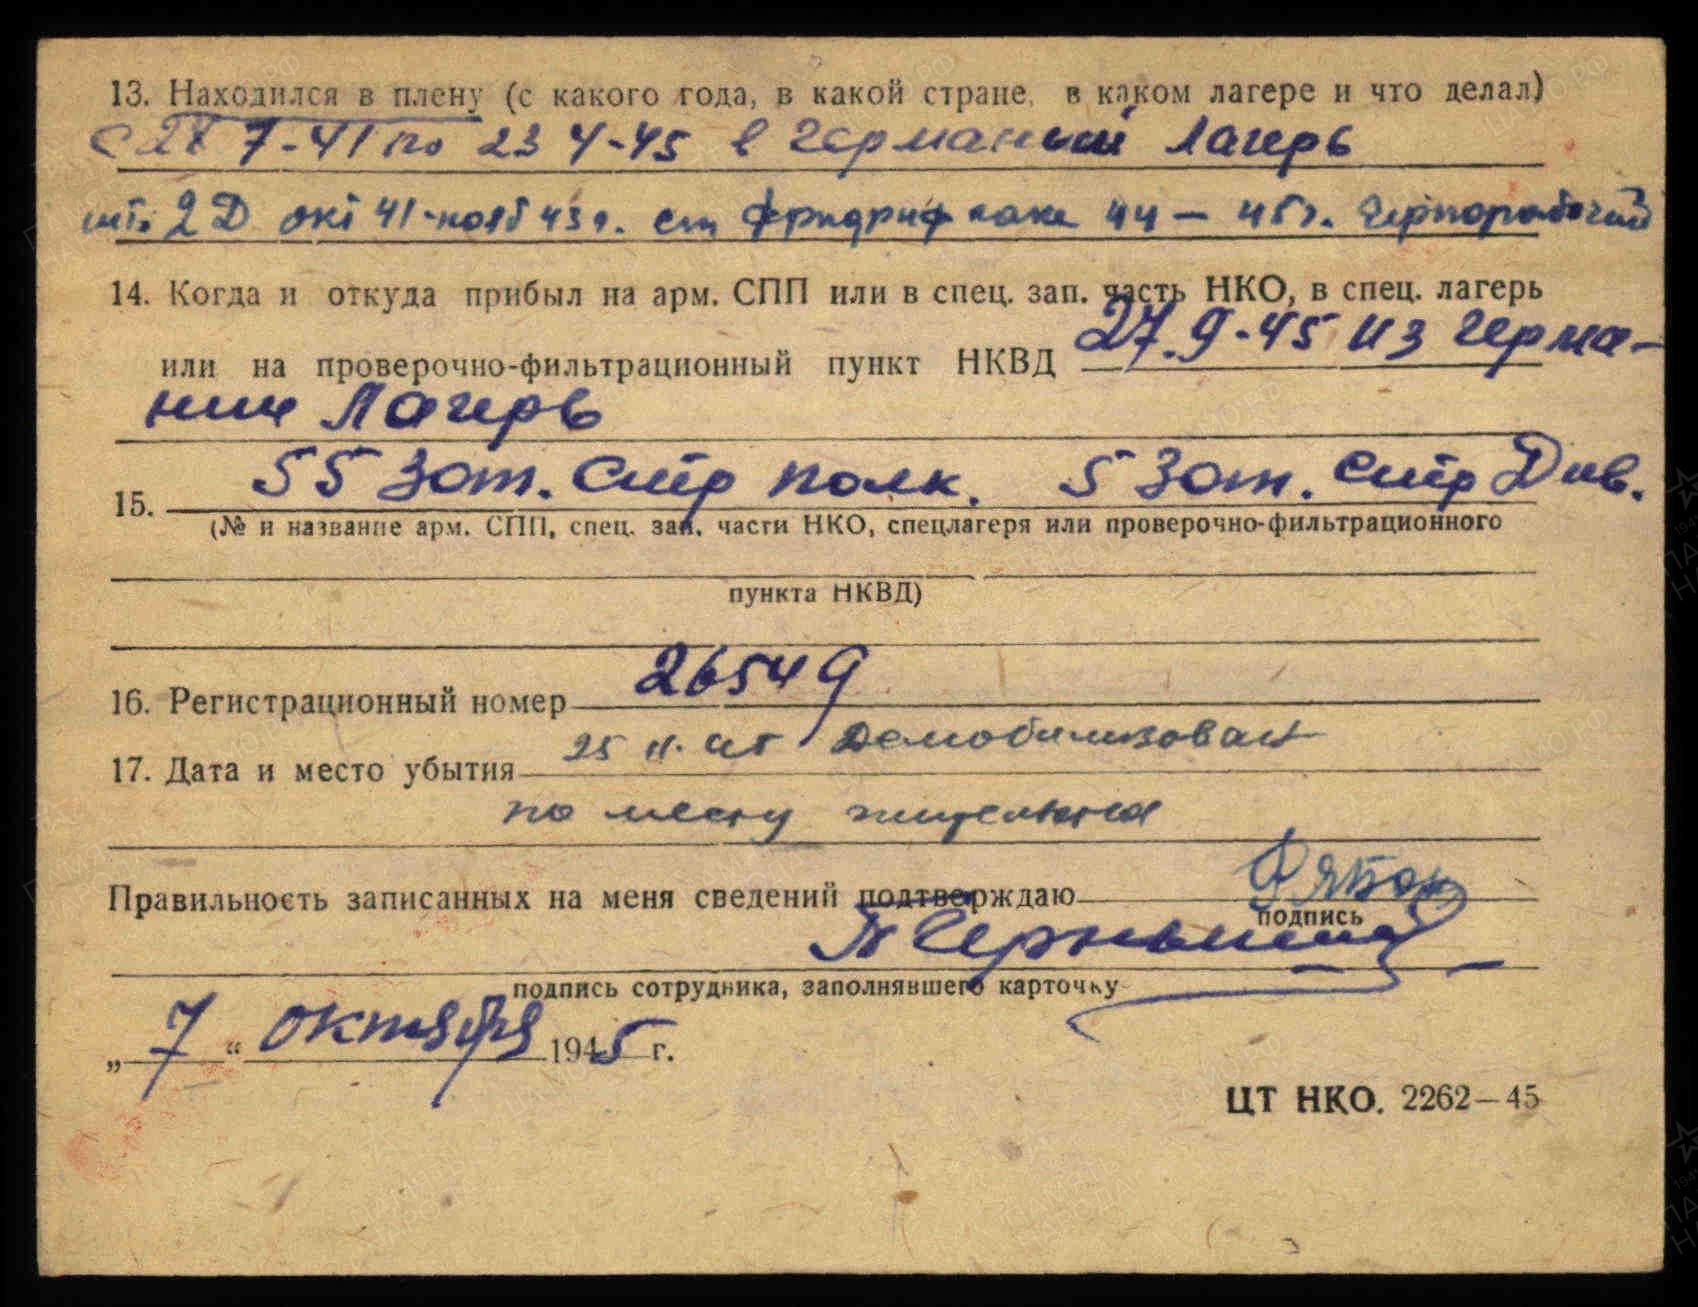 13. Находился в плену (с какого года, в какой стране, в каком лагере и что делал)
с 27 7-41 по 23 4-45 в германый Лагерь
шт. 2Д окт 41-нояб 43 г. ст 44 – 45 г. Чернорабочий
14. Когда и откуда прибыл на арм. СПП или в спец. зап. часть НКО, в спец. лагерь
или на проверочно-фильтрационный пункт НКВД 27.9-45 из Герма-
нии Лагерь
15. 55 Зап. Стр полк. 5 Зап. Стр Див.
(№ и название арм. СПП, спец. зап. части НКО, спецлагеря или проверочно-фильтрационного
пункта НКВД)
16. Регистрационный номер 26549
17. Дата и место убытия 25 11. 45 Демобилизован
по месту жительства
Правильность записанных на меня сведений подтверждаю Рябок
подпись
подпись сотрудника, заполнявшего карточку
„ 7 “ октября 1945 г.
ЦТ НКО. 2262—45